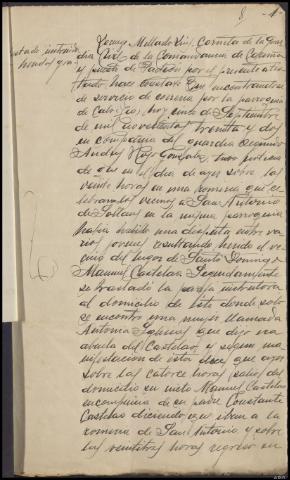 8 1
Atestado instruido
heridos gra-
Jenny Mellado Ruiz, Corneta de la Guar-
dia Civil de la Comandancia de Coruña
y puesto de Padrón por el presente ates-
tado, hace constar: Que encontrandose
de servicio de correria por la parroquia
de Calo (Teo), hoy once de Septiembre
de mil novecientos treinta y dos
en compañia del guardia segundo
Andrés Rey González, tuvo noticias
de que en el dia de ayer sobre las
veinte horas en una romeria que ce-
lebraban los vecinos a San Antonio
de en la misma parroquia
habia habido una disputa entre va-
rios jovenes resultando herido el ve-
cino del lugar de Santo Domingo
Manuel Castelao. Seguidamente
se trasladó la pareja instructora
al domicilio de este donde solo
se encontró una mujer llamada
Antonia Iglesias que dijo era
abuela del Castelao, y segun ma-
nifestacion de esta dice que ayer
sobre las catorce horas salió del
domicilio su nieto Manuel Castelao
en compañia de su padre Constante
Castelao diciendo que iban a la
romeria de San Antonio y sobre
las veintitres horas regresó su